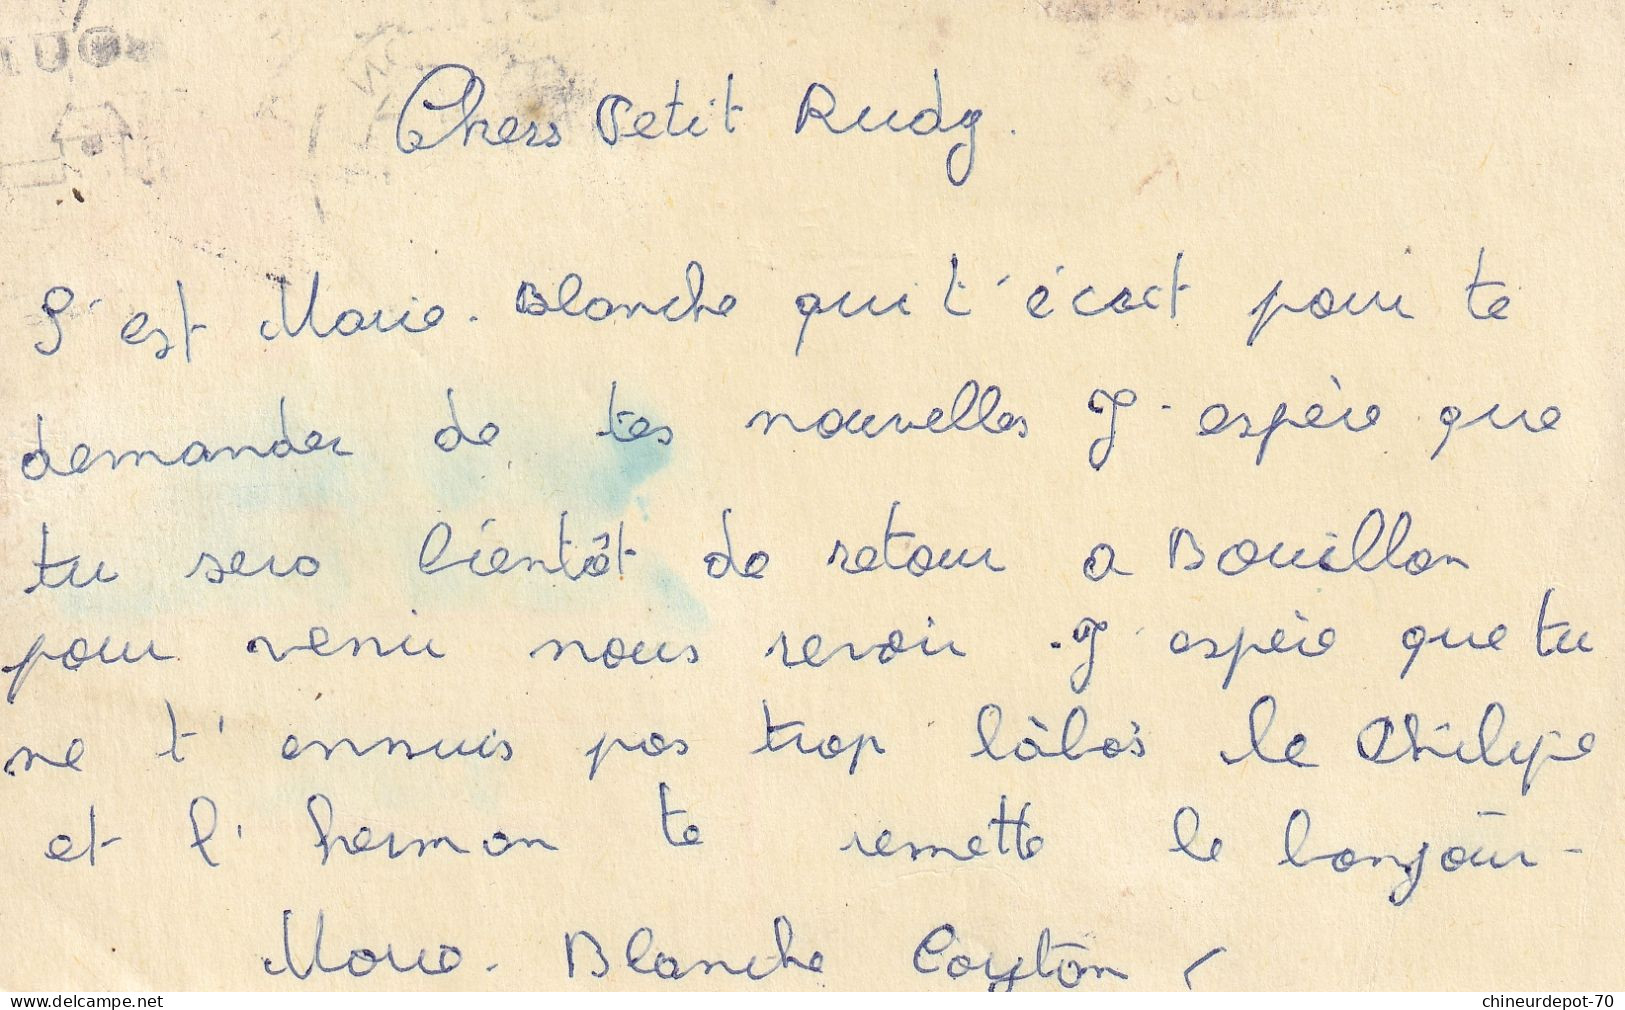 Chers Petit Rudy.
J'est Marie-Blanche qui t'écrit pour te
demander de tes nouvelles J'espère que
tu sera bientôt de retour a Bouillon
pour venir nous revoir. J'espère que tu
ne t'ennuis pas trop làbàs le Philipe
et l'herman te remette le bonjour-
Marie-Blanche
chineurdepot-70
This item is for sale on Delcampe.net